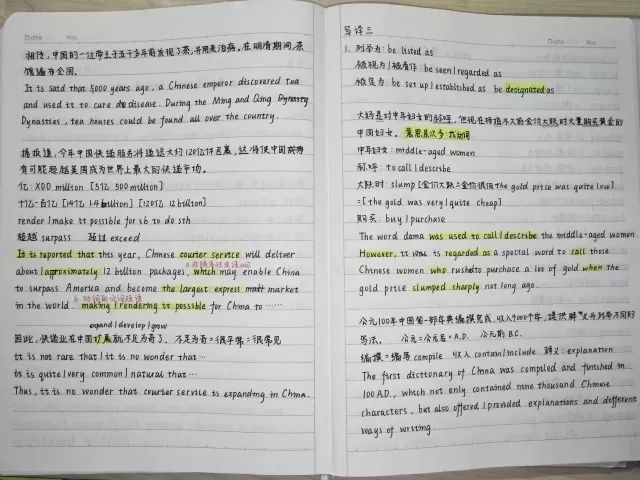 Date No.
相传,中国的一位帝王于五千多年前发现了茶,并用来治病。在明清期间,茶
馆遍布全国。
It is said that 5000 years ago, a Chinese emperor discovered tea
and used it to cure disease. During the Ming and Qing Dynasty
Dynasties, tea houses could be found all over the country.
据报道,今年中国快递服务将递送大约120亿件包裹,这将使中国
有可能超越美国成为世界上最大的快递市场。
亿: X00 million [5亿 500 million]
十亿=百亿 [14亿 1.4 billion] [120亿 12 billion]
render/make it possible for sb to do sth
超越 surpass 超过 exceed
It is reported that this year, Chinese courier service will deliver
a.非限制性定语从句
about/approximately 12 billion packages, which may enable China
to surpass America and become the largest express market
in the world. making/rendering it possible for China to ……
expand/develop/grow
因此,快递业在中国扩展就不足为奇了。不足为奇=很平常=很常见
it is not rare that/it is no wonder that …
it is quite/very common/natural that …
Thus, it is no wonder that courier service is expanding in China.
Date No.
导译三
1. 列举为: be listed as
被视为/被看作: be seen/regarded as
被定为: be set up/established as be designated as
大妈是对中年妇女的称呼,但现在特指不久前金价大跌时大量购买黄金的
中国妇女。
中年妇女: middle-aged women
称呼: to call/describe
大跌时: slump [金价大跌=金价很低 the gold price was quite low]
=[the gold was very/quite cheap]
购买: buy/purchase
The word dama was used to call/describe the middle-aged women.
However, it is regarded as a special word to call those
Chinese women who rushed to purchase a lot of gold when the
gold price slumped sharply not long ago.
公元100年中国第一部字典编撰完成,收入9000个字,提供释义并列举不同的
写法。 公元=公元后=A.D. 公元前 B.C.
编撰=编写 compile 收入 contain/include 释义 explanation
The first dictionary of China was compiled and finished in
100 A.D., which not only contained nine thousand Chinese
characters, but also offered/provided explanations and different
ways of writing.